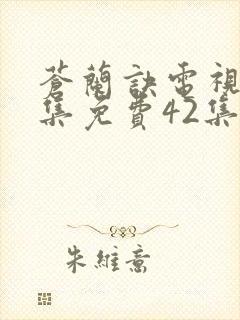 蒼蘭訣電視
集免費42集
朱維意